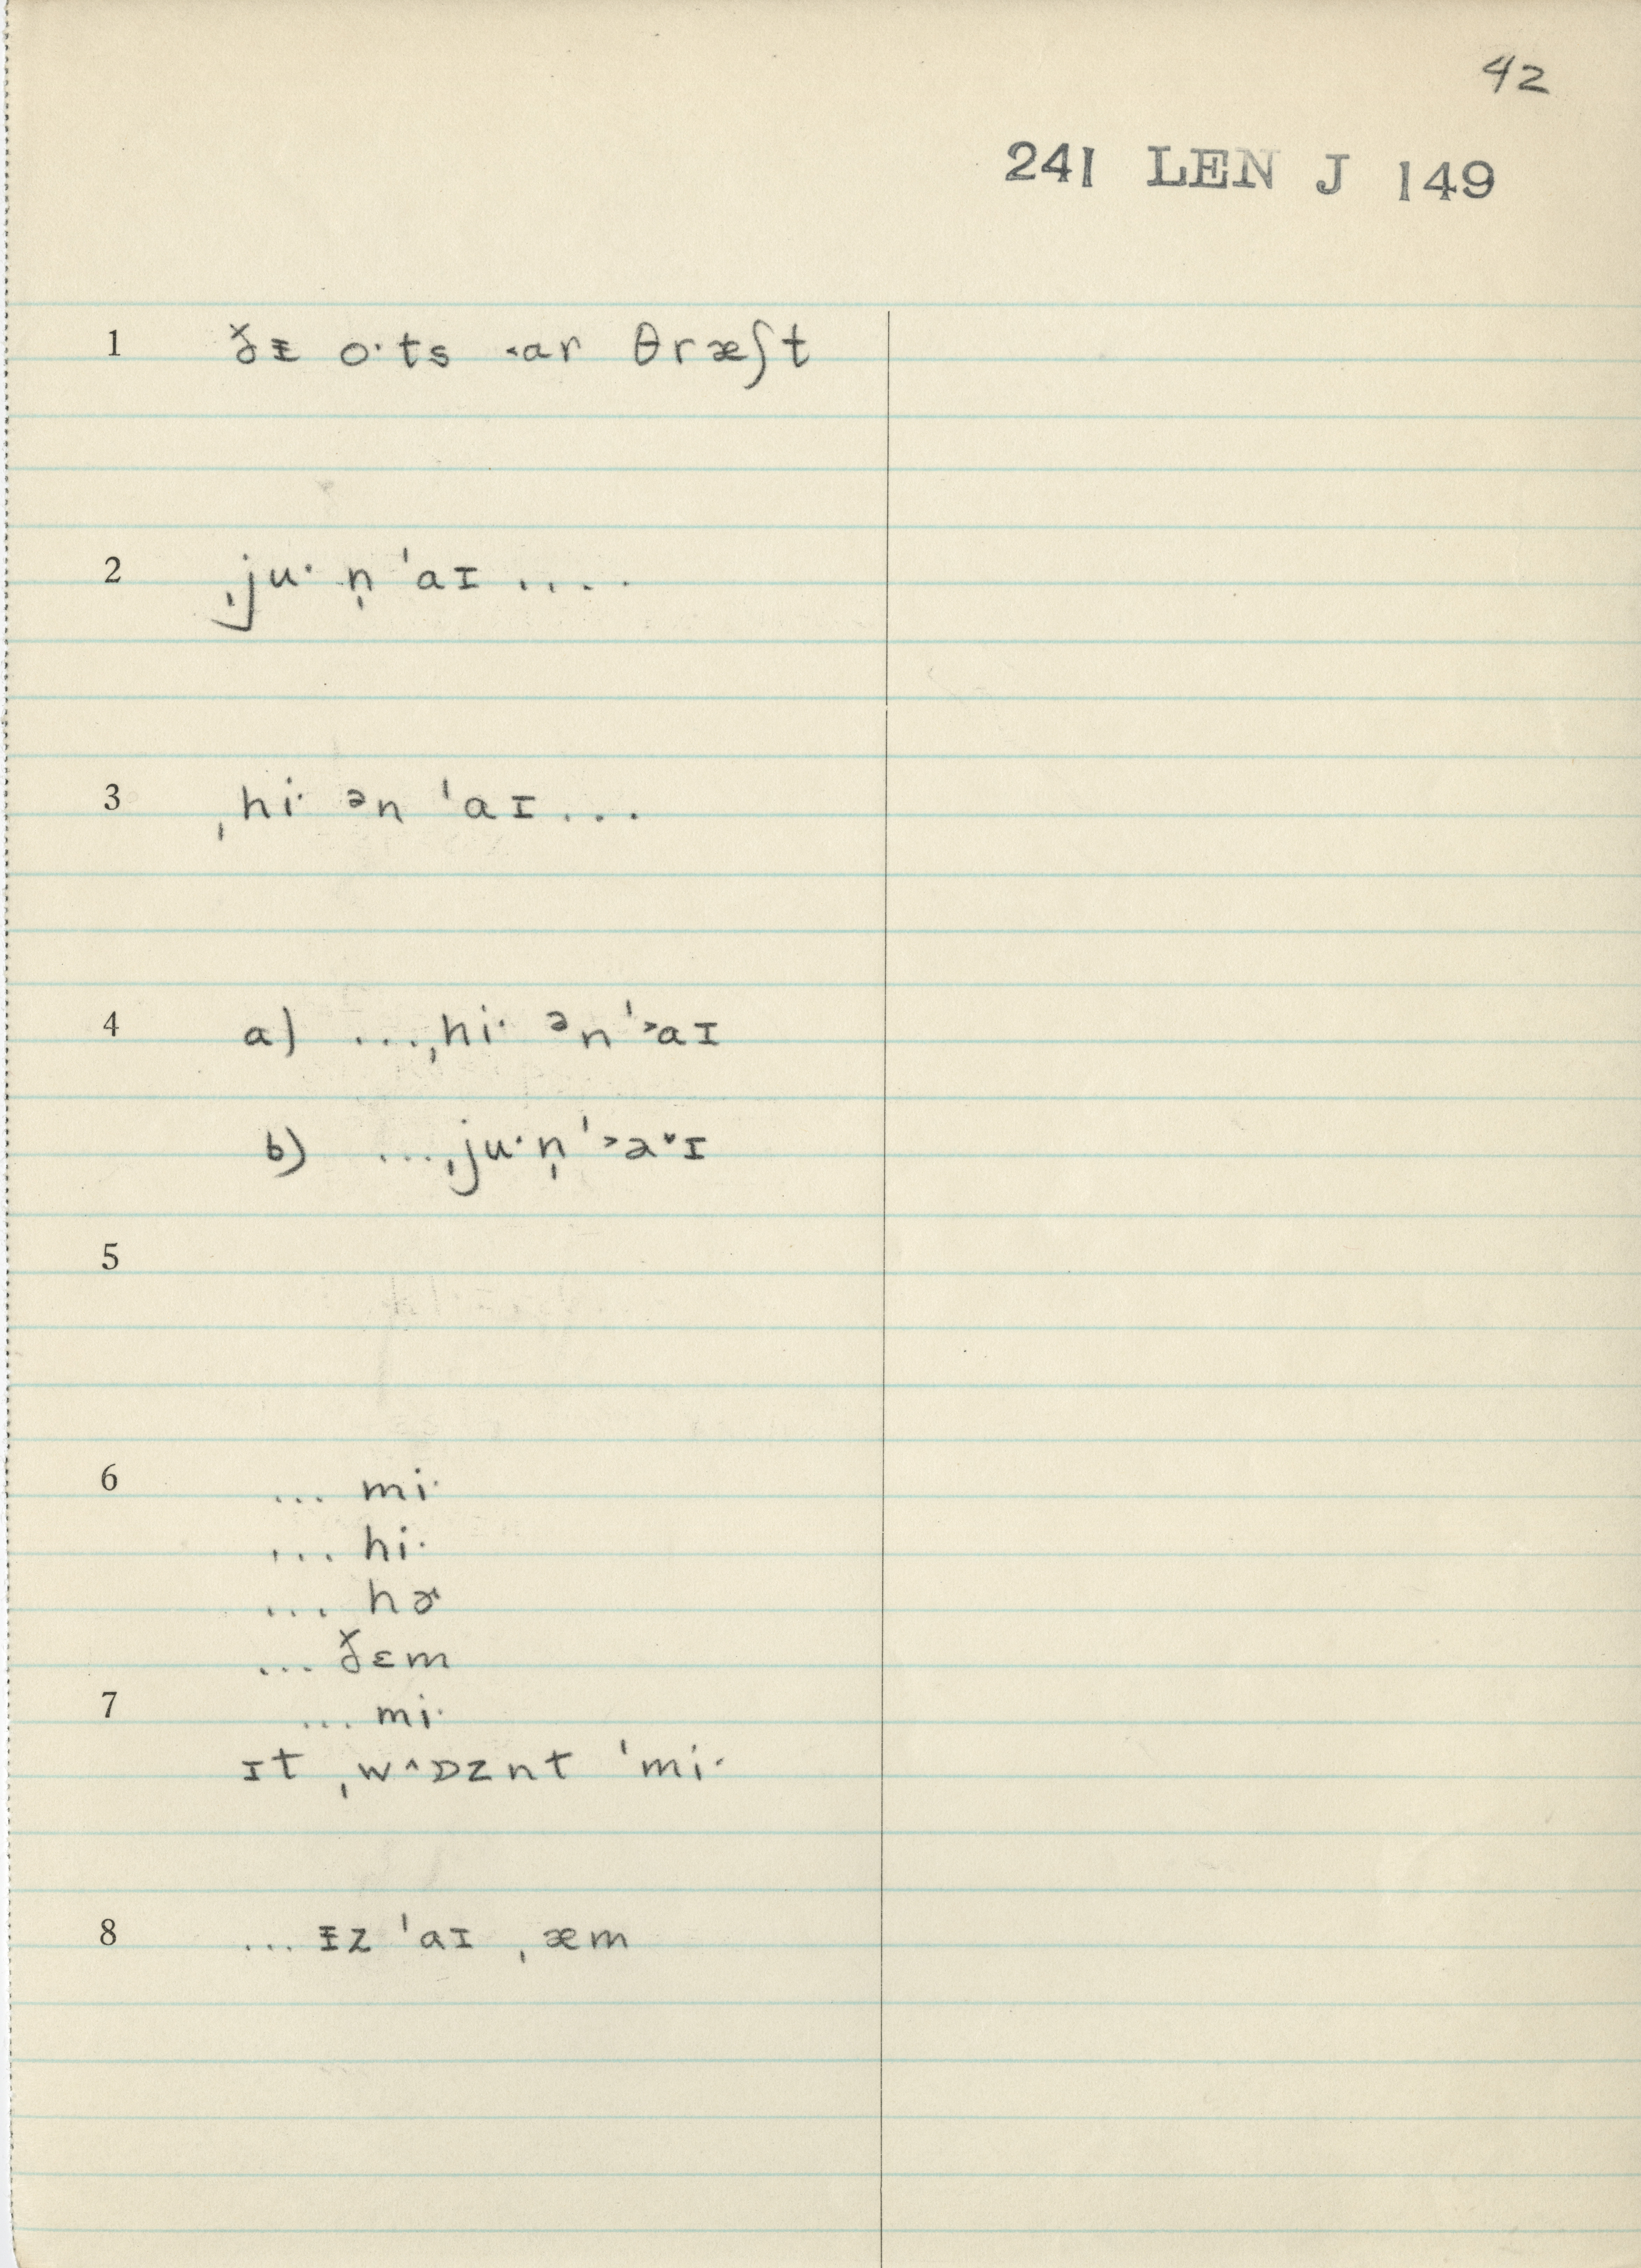 42
241 LEN J 149
1 ðᵻ o·ts ˂ar θræʃt
2 ˌju· n̩ ˈaɪ ....
3 ˌhi· ən ˈaɪ ...
4 a) ...ˌhi· ən ˈ˃aɪ
b) ...ˌju· n̩ ˈ˃a˅ɪ
5
6 ... mi·
... hi·
... hɚ
... ðɛm
7 ... mi·
ɪt ˌw^ɒznt ˈmi·
8 ... ᵻz ˈaɪ ˌæm